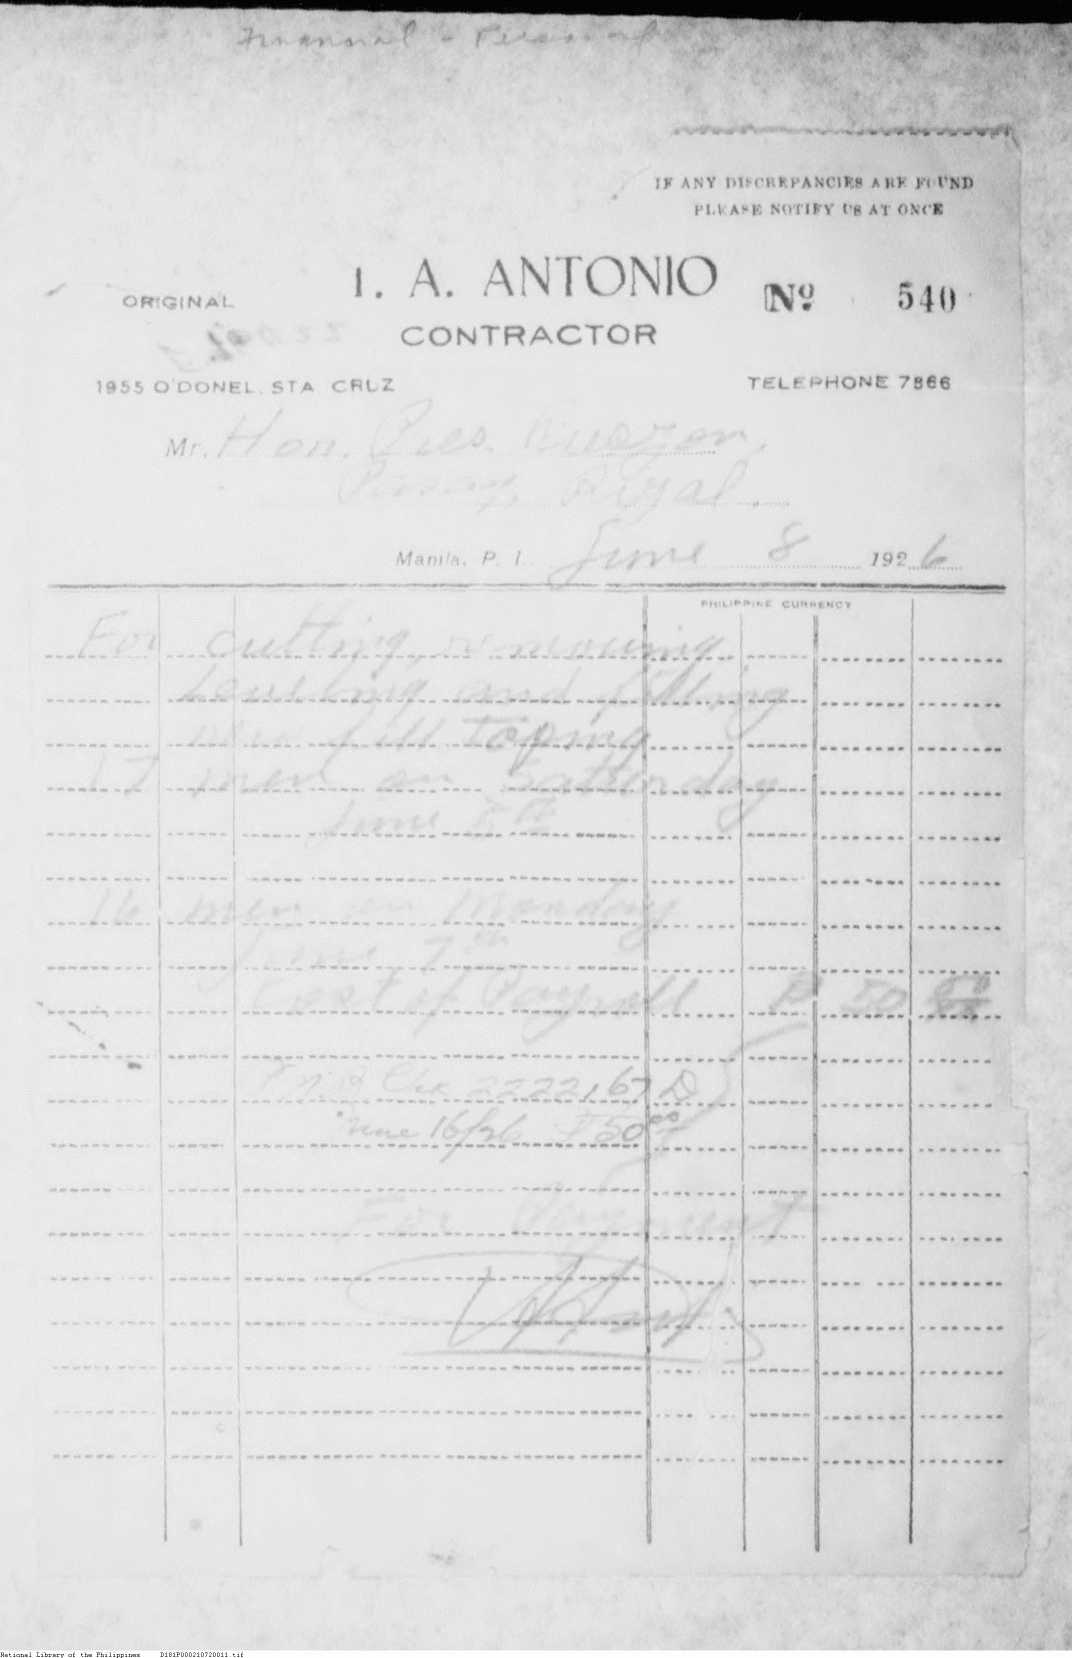 Financial - Personal
IF ANY DISCREPANCIES ARE FOUND
PLEASE NOTIFY US AT ONCE
ORIGINAL
I. A. ANTONIO
Nº 540
CONTRACTOR
1955 O'DONEL, STA CRUZ
TELEPHONE 7866
Mr. Hon. Pres. Quezon,
Pasay, Rizal.
Manila, P. I. June 8 1926
PHILIPPINE CURRENCY
For cutting, removing
leveling and filling
fill toping
17 men on Satturday
June 5th
16 men on Monday
June 7th
Cost of Payroll ₱ 50
2222,67 D
June 16/26 ₱50⁰⁰
For Payment
National Library of the Philippines D181P000210720011.tif